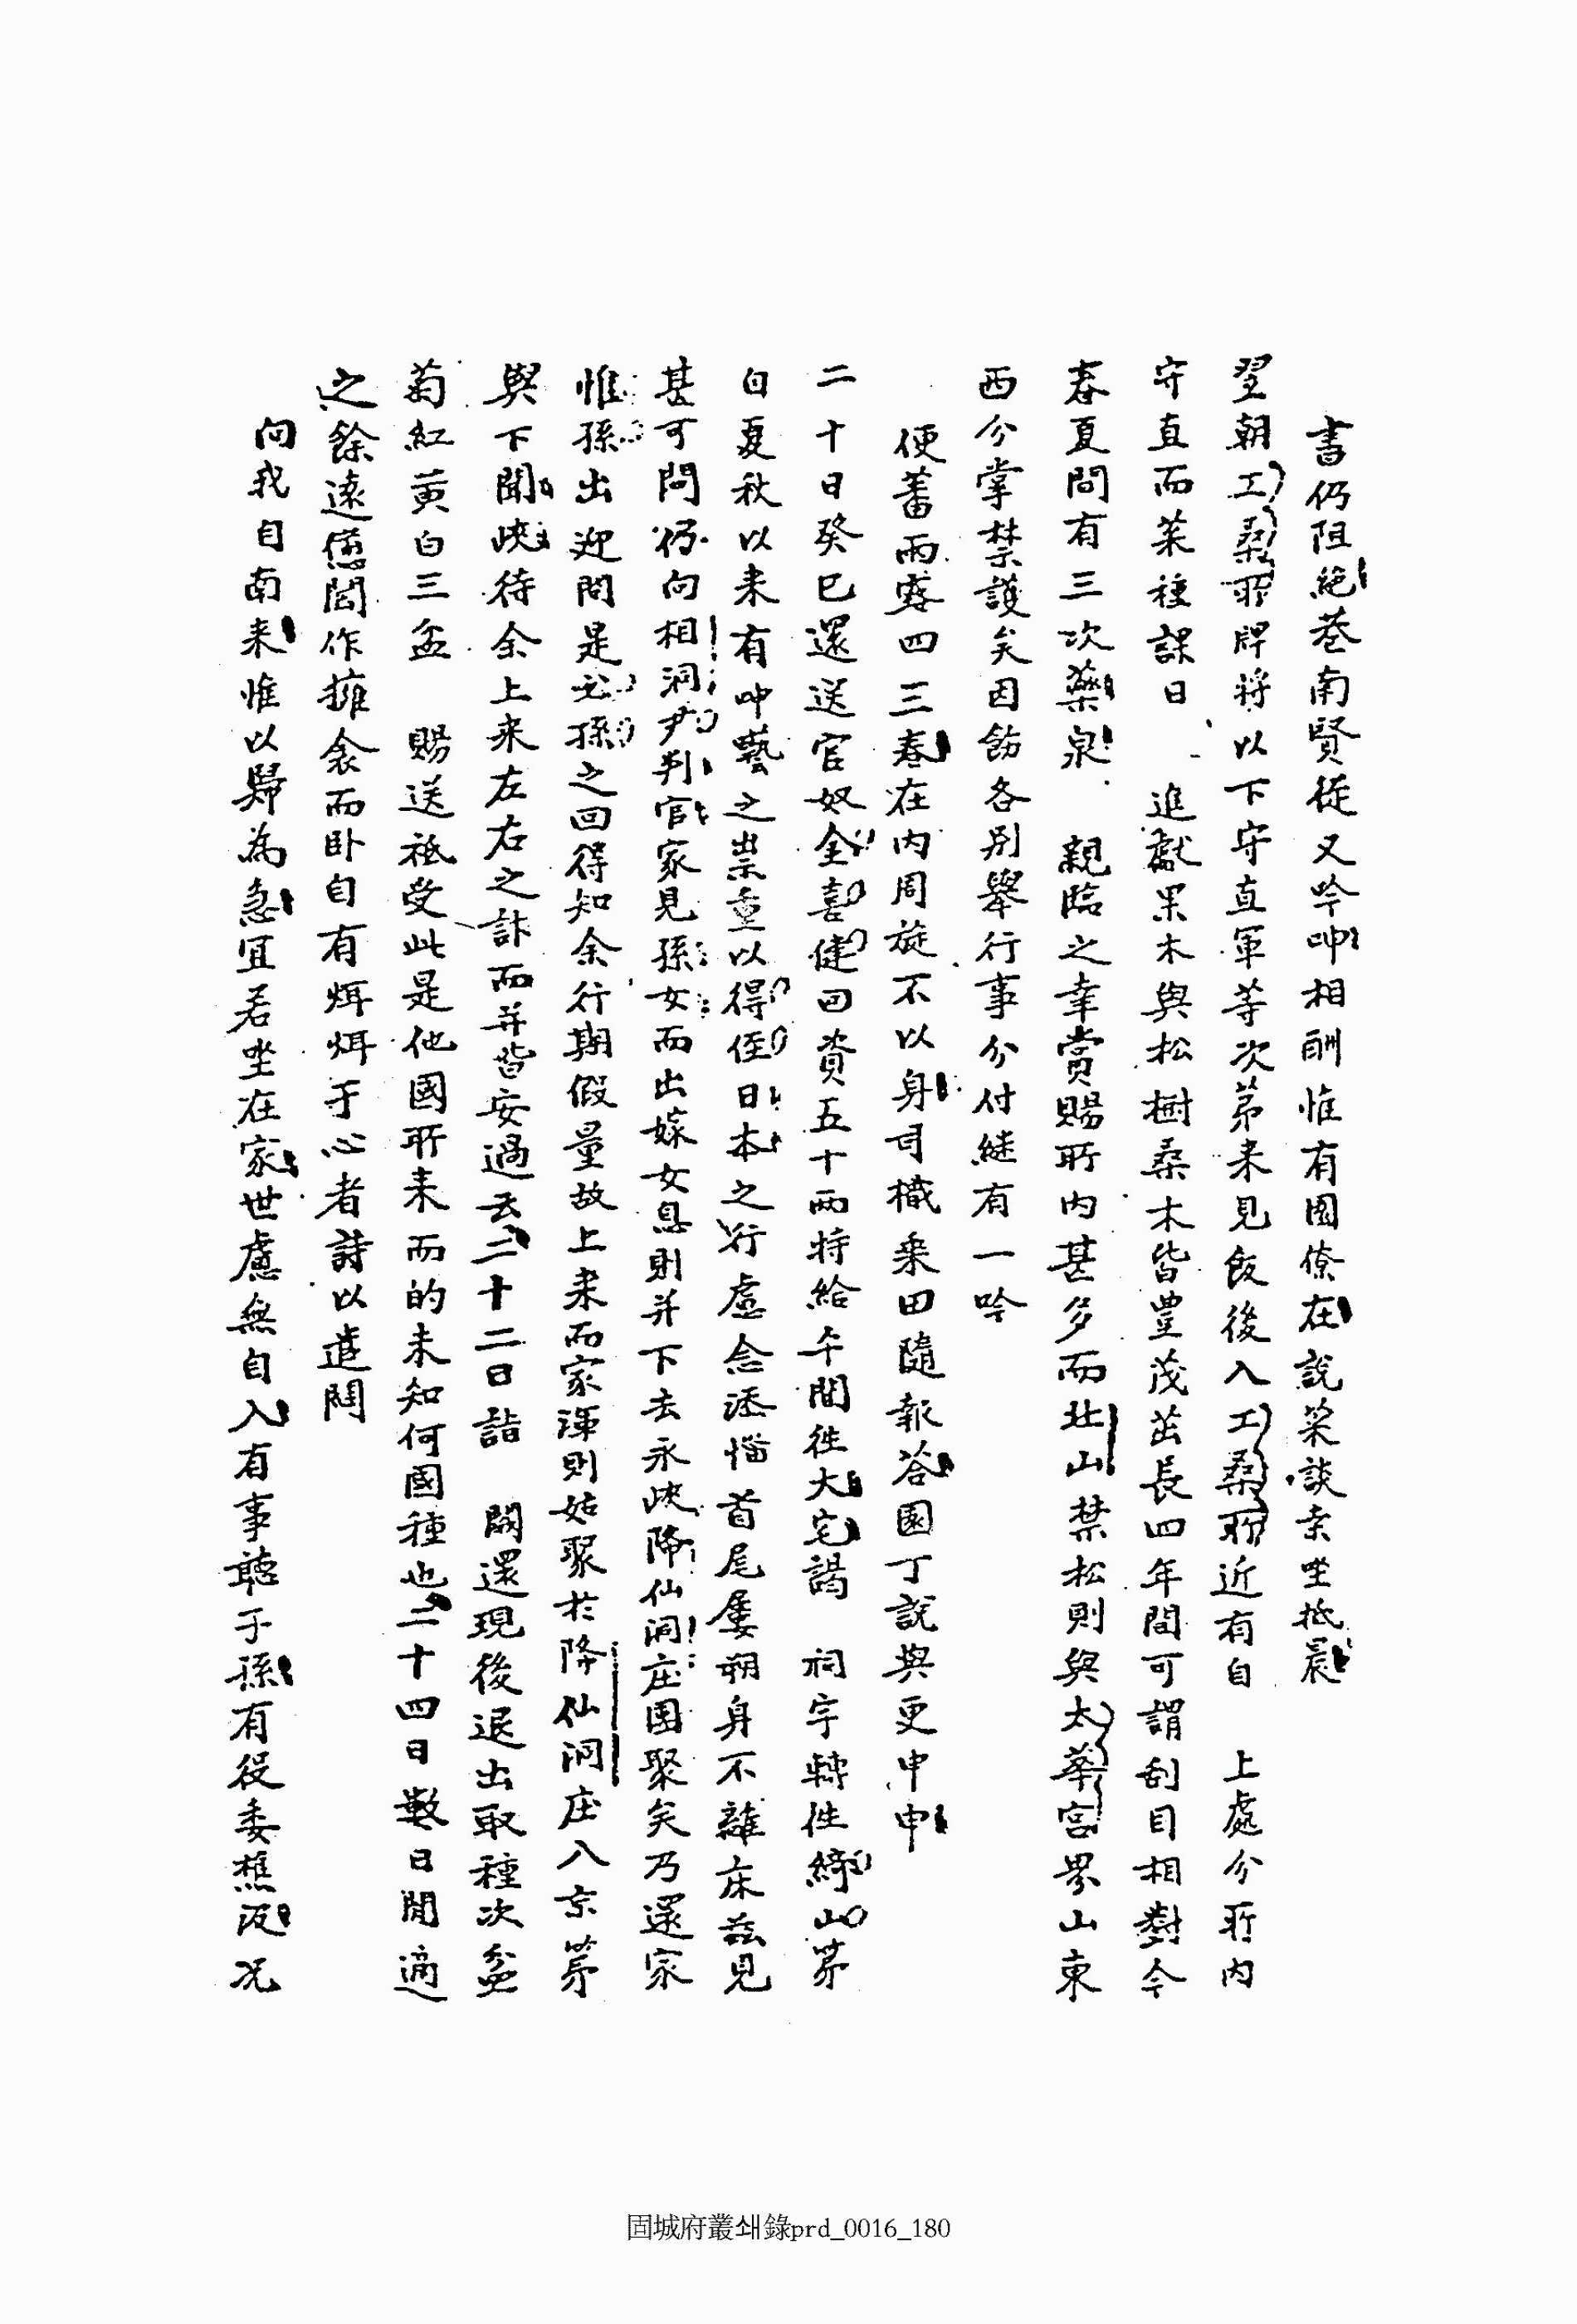 書仍阻絶巷南賢從又吟呻相酬惟有園僚在說菜談桒坐抵晨
翌朝工桑所牌將以下守直軍等次苐来見飯後入工桑所近有自 上處分所内
守直而菜種課日 進獻果木與松樹桑木皆豊茂茁長四年間可謂刮目相對今
春夏間有三次藥泉 親臨之幸賞賜所内甚多而北山禁松則與太華宮界山東
西分掌禁護矣因飭各別舉行事分付継有一吟
便蓄雨露四三春在内周旋不以身司檝乗田隨報荅園丁說與更申申
二十日癸巳還送官奴全喜健回資五十両持給午間徃大宅謁 祠宇轉徃締山苐
白夏秋以来有呻囈之祟重以得侄日本之行慮念添惱首尾屢朔身不離床茲見
甚可悶仍向相洞尹判官家見孫女而出嫁女息則并下去永峽降仙洞庄團聚矣乃還家
惟孫出迎問是允孫之回得知余行期假量故上来而家渾則姑聚於降仙洞庄八京苐
與下閒峽待余上来左右之計而并皆安過云二十二日詣 闕還現後退出取種次盆
菊紅黄白三盆 賜送祗受此是他國所来而的未知何國種也二十四日數日閒適
之餘遠憊闔作擁衾而卧自有烱烱于心者詩以遣閙
向我自南来惟以歸為急宜若坐在家世慮無自入有事聴于孫有役委樵汲况